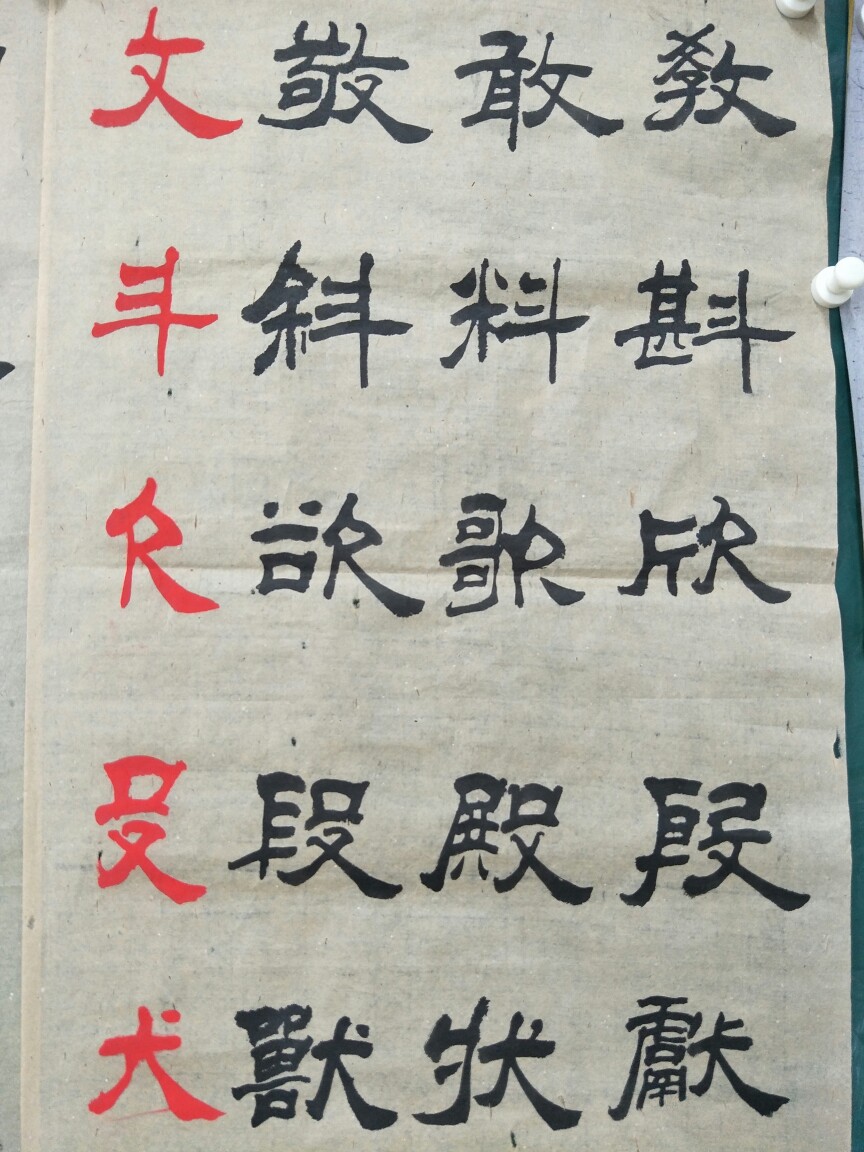 攵敬敢教
斗斜料斟
欠欲歌欣
殳段殿殷
犬獸状獻